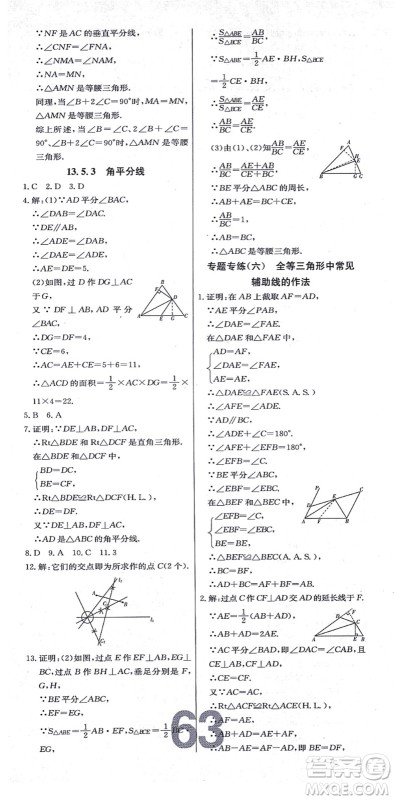 ∵NF是AC的垂直平分线,
∴∠CNF=∠ANF,
∴∠NMA=∠NAM,
∴NA=NM,
∴△AMN是等腰三角形.
同理,当∠B+2∠C=90°时,△AMN是等腰三角形.
综上所述,当∠B+2∠C=90°时,△AMN是等腰三角形.
13.5.3 角平分线
1.C 2.D 3.D
4.解:(1)∵AD平分∠BAC,
∴∠DAB=∠DAC.
∵DE∥AB,
∴∠ADE=∠DAB,
∴∠ADE=∠DAC,
∴AE=DE=5.
(2)如图,过点D作DG⊥AC于点G,
又∵DF⊥AB,AD平分∠BAC,
∴DG=DF=4.
∵CE=6,
∴AC=AE+CE=5+6=11,
∴△ACD的面积=1/2×AC×DG=1/2×11×4=22.
5.B 6.A
7.证明:∵DE⊥AB,DF⊥AC,
∴Rt△BDE和Rt△DCF是直角三角形.
在Rt△BDE和Rt△DCF中,
BD=DC,
BE=CF,
∴Rt△BDE≌Rt△DCF(H.L.),
∴DE=DF.
又∵DE⊥AB,DF⊥AC,
∴AD是△ABC的角平分线.
8.D 9.A 10.C 11.3
12.解:它们的交点即为所求作的点C(2个).
13.证明:(2)如图,过点E作EF⊥AB,EG⊥BC,过点B作BH⊥AC,垂足分别是F,G,H.
∵BE平分∠ABC,
∴EF=EG.
∵S△ABE=1/2AB·EF,S△BCE=1/2BC·EG,
∴S△ABE/S△BCE=AB/BC.
∵S△ABE=1/2AE·BH,S△BCE=1/2CE·BH,
∴S△ABE/S△BCE=AE/CE,
∴AB/BC=AE/CE.
(3)由(1)、(2)知AB/BC=AE/CE,
∴AB/BC=
∵BE平分△ABC的周长,
∴AB+AE=BC+CE,
∴AB/BC=1,
∴AB=BC,
∴△ABC是等腰三角形.
专题专练(六) 全等三角形中常见
辅助线的作法
1.证明:在AB上截取AF=AD,
∵AE平分∠DAB,
∴∠DAE=∠FAE.
在△DAE和△FAE中,
AD=AF,
∠DAE=∠FAE,
AE=AE,
∴△DAE≌△FAE(S.A.S.),
∴∠AFE=∠ADE.
∵AD∥BC,
∴∠ADE+∠C=180°.
∵∠AFE+∠EFB=180°,
∴∠EFB=∠C.
∵BE平分∠ABC,
∴∠EBF=∠EBC.
在△BEF和△BEC中,
∠EFB=∠C,
∠EBF=∠EBC,
BE=BE,
∴△BEF≌△BEC(A.A.S.),
∴BF=BC,
∴AD+BC=AF+BF=AB.
2.解:过点C作CF⊥AD交AD的延长线于F.
∵AE=1/2(AB+AD),
∴2AE=AB+AD,
∴AD=2AE-AB.
∵AE=AB-BE,
∴AD=2(AB-BE)-AB=AB-2BE,
∴AD+2BE=AB.
∵AB-AE=BE,AD+2BE=AB,
∴AD+2BE-AE=BE,
63
答案圈
MXQE.COM